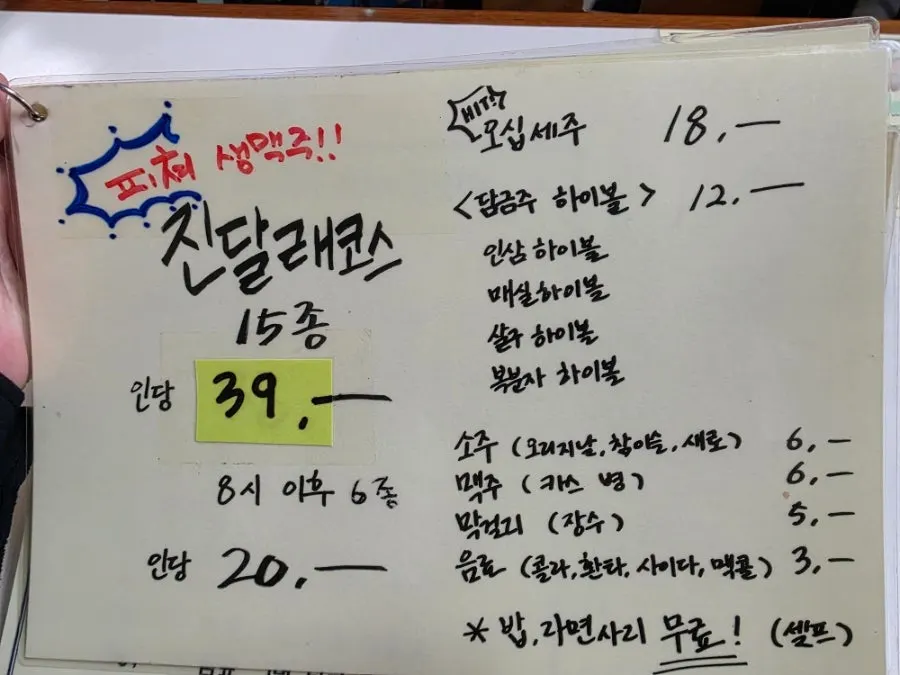 피쳐 생맥주!!
진달래코스
15종
인당 39,—
8시 이후 6종
인당 20,—
오십세주 18,—
<담금주 하이볼> 12,—
인삼하이볼
매실하이볼
살구하이볼
복분자 하이볼
소주 (오리지날, 참이슬, 새로) 6,—
맥주 (카스 병) 6,—
막걸리 (장수) 5,—
음료 (콜라, 환타, 사이다, 맥콜) 3,—
* 밥, 라면사리 무료! (셀프)